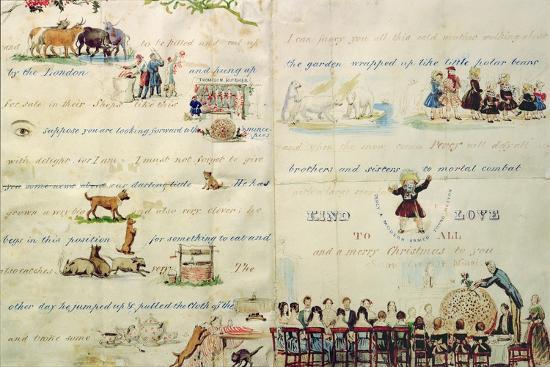 and to be killed and cut up
by the London and hung up
THOMSON BUTCHER
for sale in their Shops like this
Suppose you are looking forward to the mince
pies
with delight, for I am I must not forget to give
you some news about our darling little He has
grown a very big and also very clever; he
begs in this position for something to eat and
also catches very The
other day he jumped up & pulled the Cloth off the
and broke some
I can fancy you all this cold weather walking about
the garden wrapped up like little polar bears
and when the snow comes Percy will defy all
brothers and sisters to mortal combat
with a large snow
KIND LOVE
TO ALL
and a merry Christmas to you